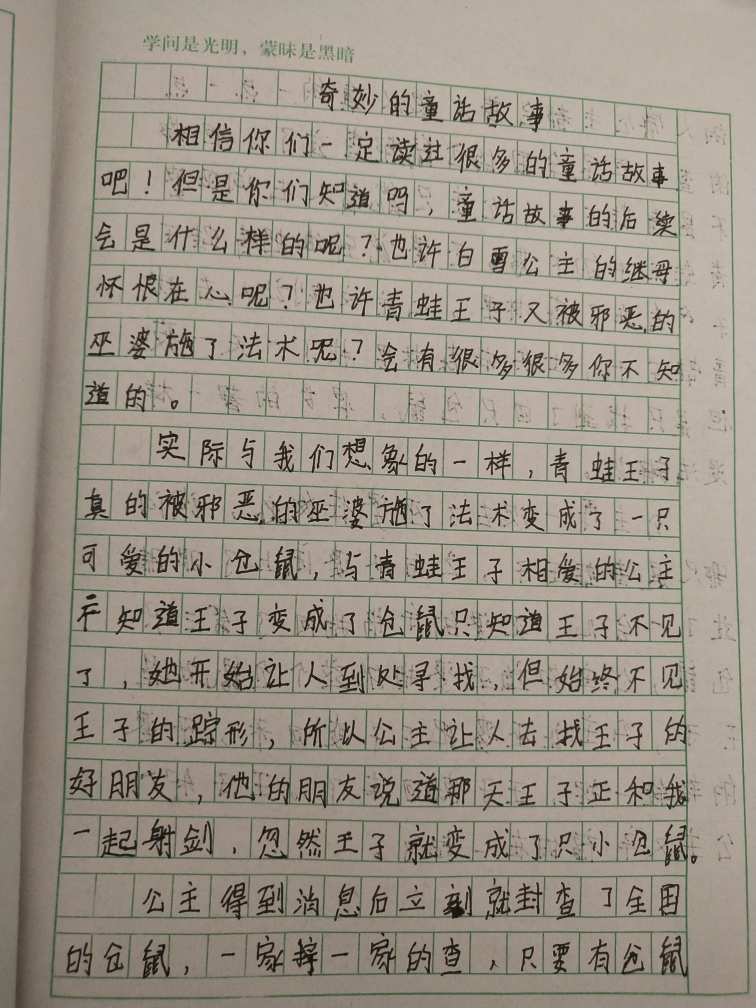 学问是光明，蒙昧是黑暗
奇妙的童话故事
相信你们一定读过很多的童话故事
吧！但是你们知道吗，童话故事的后续
会是什么样的呢？也许白雪公主的继母
怀恨在心呢？也许青蛙王子又被邪恶的
巫婆施了法术呢？会有很多很多你不知
道的。
实际与我们想象的一样，青蛙王子
真的被邪恶的巫婆施了法术变成了一只
可爱的小仓鼠，与青蛙王子相爱的公主
不知道王子变成了仓鼠只知道王子不见
了，她开始让人到处寻找，但始终不见
王子的踪形，所以公主让人去找王子的
好朋友，他的朋友说道那天王子正和我
一起射剑，忽然王子就变成了只小仓鼠。
公主得到消息后立刻就封查了全国
的仓鼠，一家挨一家的查，只要有仓鼠